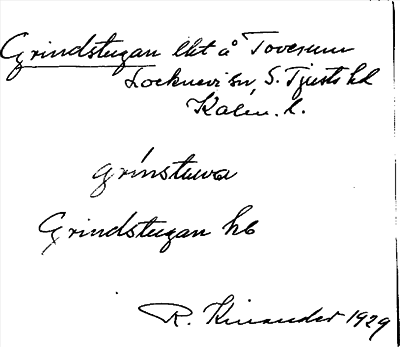 Grindstugan lht å Toverum
Locknevi sn, S. Tjusts hd
Kalm. l.
grínstuwa
Grindstugan hb
R. Kinander 1929